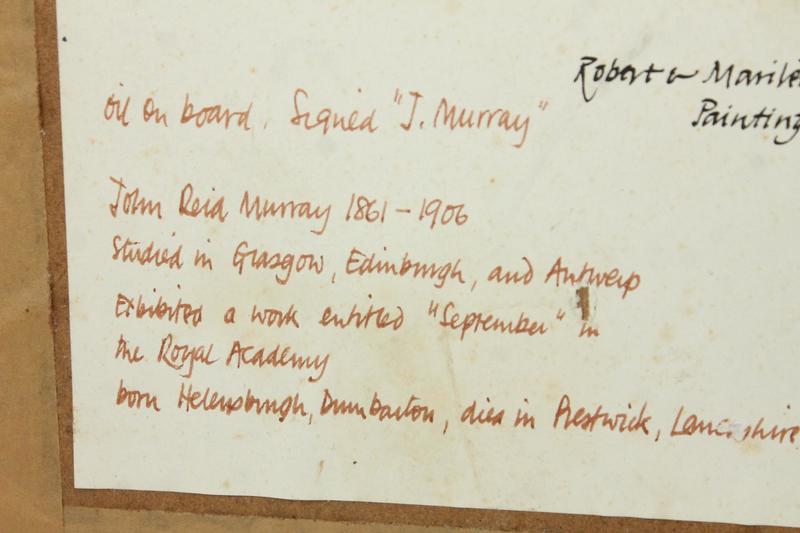 Robert & Marilè
Painting
oil on board. Signed "J. Murray"
John Reid Murray 1861 – 1906
Studied in Glasgow, Edinburgh, and Antwerp
Exhibited a work entitled "September" in
the Royal Academy
born Helensburgh, Dumbarton, died in Prestwick,